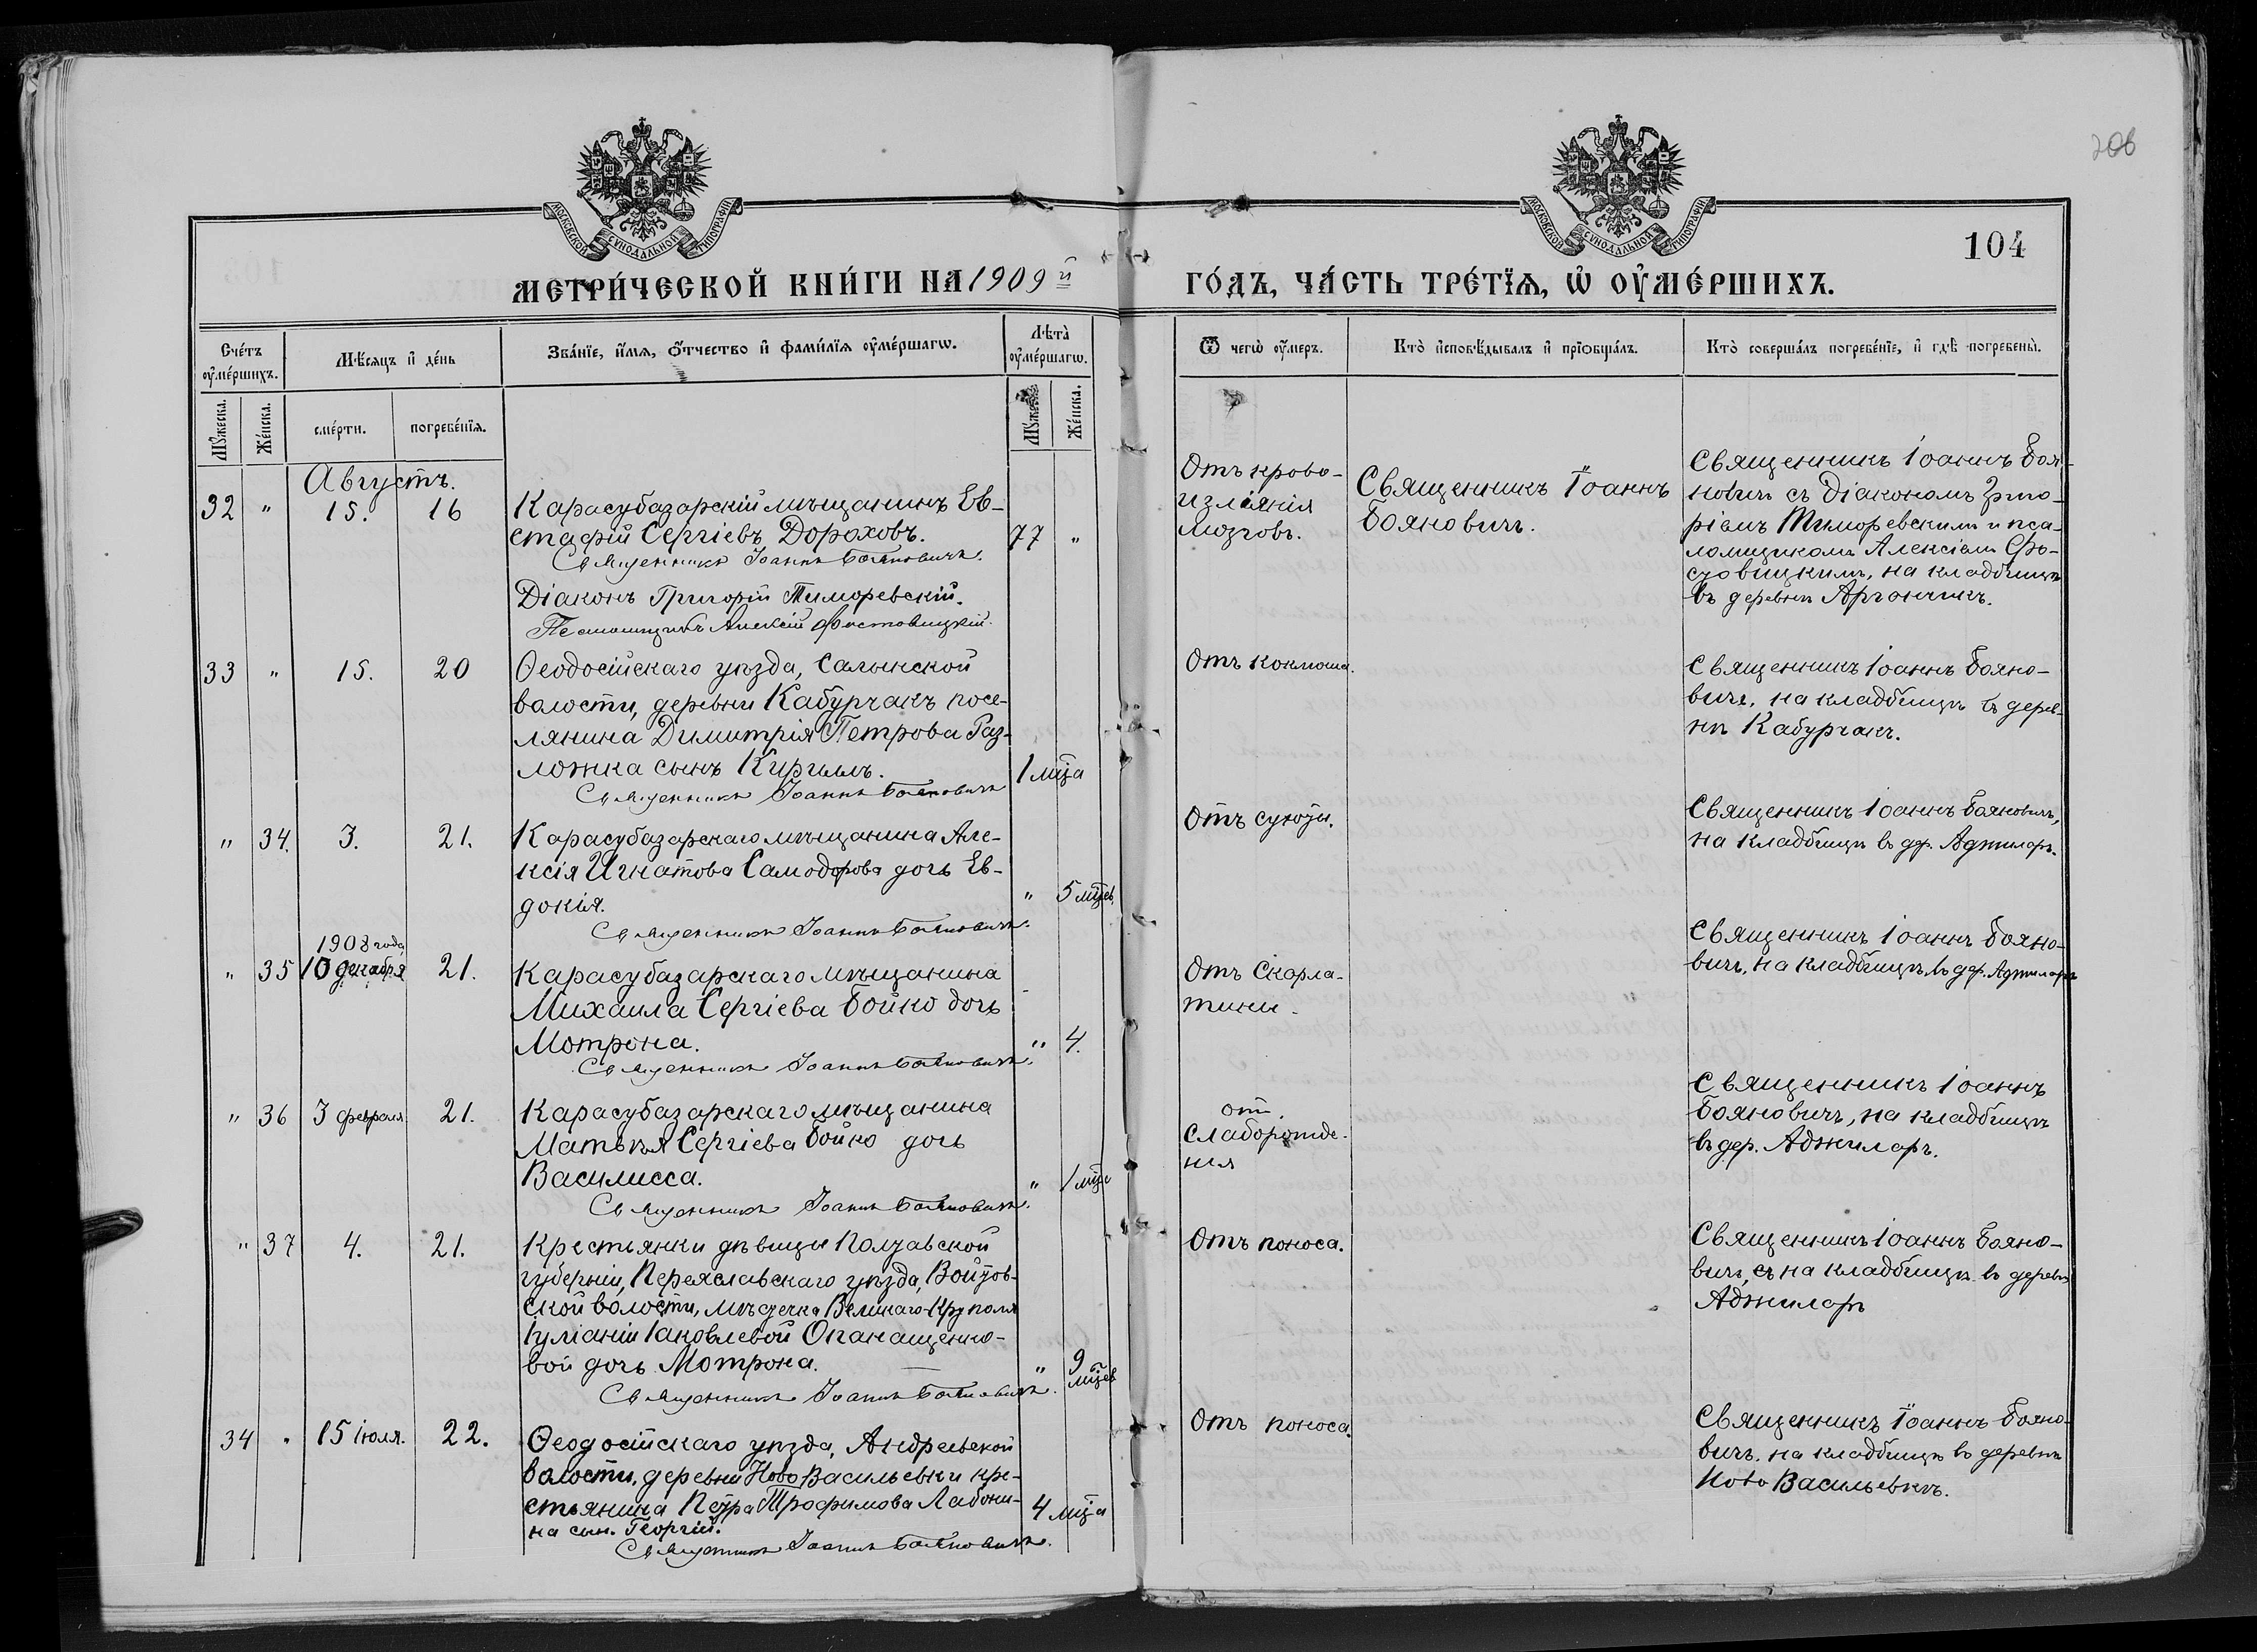 206
МОСКОВСКОЙ СѴНОДАЛЬНОЙ ТИПОГРАФІИ
МОСКОВСКОЙ СѴНОДАЛЬНОЙ ТИПОГРАФІИ
104
МЕТРИ́ЧЕСКОЙ КНИ́ГИ НА 1909й ГО́ДЪ, ЧА́СТЬ ТРЕ́ТЇѦ, Ѡ҆ ОУ҆МЕ́РШИХЪ.
Сче́тъ оу҆ме́ршихъ.
Мѣ́сяцъ и҆ де́нь
Зва́нїе, и҆́мѧ, ѻ҆́тчество и҆ фами́лїѧ оу҆ме́ршагѡ.
Лѣта̀ оу҆ме́ршагѡ.
Ѿ чегѡ̀ оу҆́меръ.
Кто̀ и҆сповѣ́дывалъ и҆ прїѡбща́лъ.
Кто̀ соверша́лъ погребе́нїе, и҆ гдѣ̀ погребены̀.
Мꙋ́жеска.
Же́нска.
сме́рти.
погребе́нїѧ.
Мꙋ́жеска.
Же́нска.
Августъ.
32 " 15. 16
Карасубазарскій мѣщанинъ Ев-
стафій Сергіевъ Дороховъ.
77 "
Священникъ Іоаннъ Бояновичъ.
Діаконъ Григорій Тиморевскій.
Псаломщикъ Алексій
Отъ крово-
изліянія
мозговъ.
Священникъ Іоаннъ
Бояновичъ.
Священникъ Іоаннъ Боя-
новичъ съ Діакономъ Григо-
ріемъ Тиморевскимъ и пса-
ломщикомъ Алексіемъ
на кладбищѣ
въ деревнѣ Аргончикъ.
33 " 15. 20
Ѳеодосійскаго уѣзда, Салынской
волости, деревни Кабурчакъ посе-
лянина Димитрія Петрова Раз-
ложка сынъ Кириллъ.
1 мѣца
Священникъ Іоаннъ Бояновичъ
Отъ коклюша.
Священникъ Іоаннъ Бояно-
вичъ, на кладбищѣ въ дерев-
нѣ Кабурчакъ.
" 34. 3. 21.
Карасубазарскаго мѣщанина Але-
ксія Игнатова Самодорова дочь Ев-
докія.
" 5 мѣцев.
Священникъ Іоаннъ Бояновичъ.
Отъ сухоты.
Священникъ Іоаннъ Бояновичъ,
на кладбищѣ въ дер. Аджиларъ.
1908 года
" 35 10 декабря 21.
Карасубазарскаго мѣщанина
Михаила Сергіева Бойко дочь
Мотрона.
" 4.
Священникъ Іоаннъ Бояновичъ.
Отъ Скарла-
тины.
Священникъ Іоаннъ Бояно-
вичъ, на кладбищѣ въ дер. Аджиларъ
" 36 3 февраля 21.
Карасубазарскаго мѣщанина
Матвѣя Сергіева Бойко дочь
Василисса.
" 1 мѣц
Священникъ Іоаннъ Бояновичъ.
отъ
слаборожде-
нія
Священникъ Іоаннъ
Бояновичъ, на кладбищѣ
въ дер. Аджиларъ.
" 37 4. 21.
Крестьянки дѣвицы Полтавской
губерніи, Переяславскаго уѣзда, Войтов-
ской волости, мѣстечка Великаго-Круполя
Іуліаніи Іаковлевой Опанащенко-
вой дочь Мотрона.
" 9 мѣцев
Священникъ Іоаннъ Бояновичъ.
Отъ поноса.
Священникъ Іоаннъ Бояно-
вичъ, на кладбищѣ въ деревн
Аджиларъ
34 " 15 Іюля. 22.
Ѳеодосійскаго уѣзда, Андреевской
волости, деревни Ново Васильевки кре-
стьянина Петра Трофимова Лабони-
на сынъ Георгій.
4 мѣца
Священникъ Іоаннъ Бояновичъ.
Отъ поноса.
Священникъ Іоаннъ Бояно-
вичъ, на кладбищѣ въ деревнѣ
Ново Васильевкѣ.